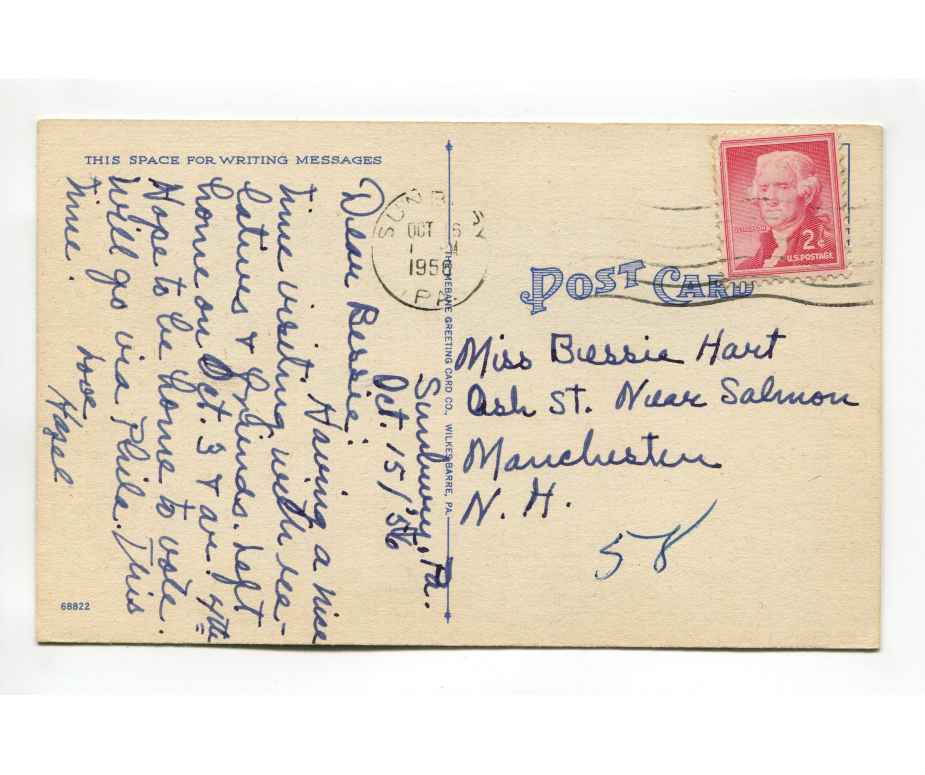 THIS SPACE FOR WRITING MESSAGES
Sunbury, Pa.
Oct. 15, '56
Dear Bessie:
Having a nice
time visiting with rea-
latives & friends. Left
home on Oct. 3 & ar. 4th
Hope to be home to vote.
Will go via Phila. This
time.
Love
Hazel
68822
THE MEBANE GREETING CARD CO., WILKES-BARRE, PA.
SUNB Y
OCT 6
1956
PA
2¢
U.S. POSTAGE
POST CARD
Miss Bessie Hart
Ash St. Near Salmon
Manchester
N. H.
58